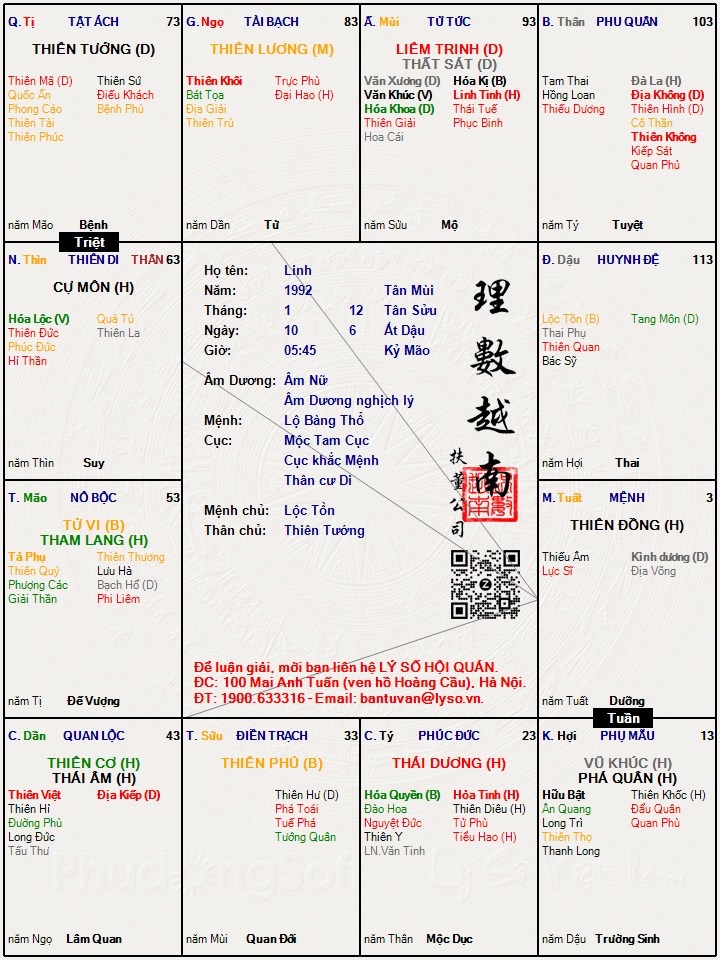 Q. Tị TẬT ÁCH 73
THIÊN TƯỚNG (D)
Thiên Mã (D) Thiên Sứ
Quốc Ấn Điếu Khách
Phong Cáo Bệnh Phù
Thiên Tài
Thiên Phúc
năm Mão Bệnh
G. Ngọ TÀI BẠCH 83
THIÊN LƯƠNG (M)
Thiên Khôi Trực Phù
Bát Tọa Đại Hao (H)
Địa Giải
Thiên Trù
năm Dần Tử
Ấ. Mùi TỬ TỨC 93
LIÊM TRINH (D)
THẤT SÁT (D)
Văn Xương (D) Hóa Kị (B)
Văn Khúc (V) Linh Tinh (H)
Hóa Khoa (D) Thái Tuế
Thiên Giải Phục Binh
Hoa Cái
năm Sửu Mộ
B. Thân PHU QUÂN 103
Tam Thai Đà La (H)
Hồng Loan Địa Không (D)
Thiếu Dương Thiên Hình (D)
Cô Thần
Thiên Không
Kiếp Sát
Quan Phủ
năm Tý Tuyệt
Triệt
N. Thìn THIÊN DI THÂN 63
CỰ MÔN (H)
Hóa Lộc (V) Quả Tú
Thiên Đức Thiên La
Phúc Đức
Hỉ Thần
năm Thìn Suy
Họ tên: Linh
Năm: 1992 Tân Mùi
Tháng: 1 12 Tân Sửu
Ngày: 10 6 Ất Dậu
Giờ: 05:45 Kỷ Mão
Âm Dương: Âm Nữ
Âm Dương nghịch lý
Mệnh: Lộ Bàng Thổ
Cục: Mộc Tam Cục
Cục khắc Mệnh
Thân cư Di
Mệnh chủ: Lộc Tồn
Thân chủ: Thiên Tướng
理數越南
扶董公司
Để luận giải, mời bạn liên hệ LÝ SỐ HỘI QUÁN.
ĐC: 100 Mai Anh Tuấn (ven hồ Hoàng Cầu), Hà Nội.
ĐT: 1900.633316 - Email: bantuvan@lyso.vn.
Đ. Dậu HUYNH ĐỆ 113
Lộc Tồn (B) Tang Môn (D)
Thai Phụ
Thiên Quan
Bác Sỹ
năm Hợi Thai
T. Mão NÔ BỘC 53
TỬ VI (B)
THAM LANG (H)
Tả Phụ Thiên Thương
Thiên Quý Lưu Hà
Phượng Các Bạch Hổ (D)
Giải Thần Phi Liêm
năm Tị Đế Vượng
M. Tuất MỆNH 3
THIÊN ĐỒNG (H)
Thiếu Âm Kình dương (D)
Lực Sĩ Địa Võng
năm Tuất Dưỡng
Tuần
C. Dần QUAN LỘC 43
THIÊN CƠ (H)
THÁI ÂM (H)
Thiên Việt Địa Kiếp (D)
Thiên Hỉ
Đường Phù
Long Đức
Tấu Thư
năm Ngọ Lâm Quan
T. Sửu ĐIỀN TRẠCH 33
THIÊN PHỦ (B)
Thiên Hư (D)
Phá Toái
Tuế Phá
Tướng Quân
năm Mùi Quan Đới
C. Tý PHÚC ĐỨC 23
THÁI DƯƠNG (H)
Hóa Quyền (B) Hỏa Tinh (H)
Đào Hoa Thiên Diêu (H)
Nguyệt Đức Tử Phù
Thiên Y Tiểu Hao (H)
LN.Văn Tinh
năm Thân Mộc Dục
K. Hợi PHỤ MẪU 13
VŨ KHÚC (H)
PHÁ QUÂN (H)
Hữu Bật Thiên Khốc (H)
Ân Quang Đẩu Quân
Long Trì Quan Phù
Thiên Thọ
Thanh Long
năm Dậu Trường Sinh